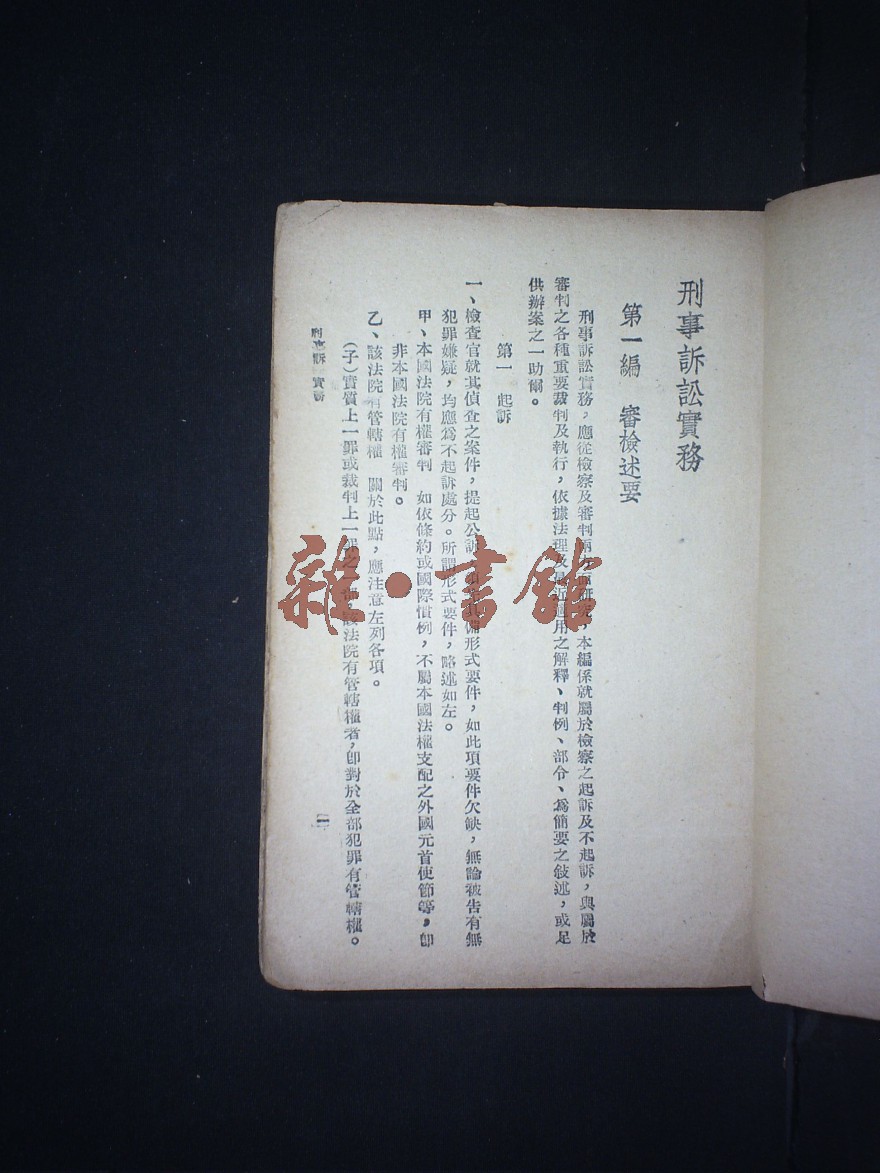 刑事訴訟實務
第一編　審檢述要
刑事訴訟實務，應從檢察及審判兩方面研究，本編係就屬於檢察之起訴及不起訴，與屬於
審判之各種重要裁判及執行，依據法理及最近適用之解釋、判例、部令、爲簡要之敍述，或足
供辦案之一助爾。
第一　起訴
一、檢查官就其偵查之案件，提起公訴，備形式要件，如此項要件欠缺，無論被告有無
犯罪嫌疑，均應爲不起訴處分。所謂形式要件，略述如左。
甲、本國法院有權審判　如依條約或國際慣例，不屬本國法權支配之外國元首使節等，卽
非本國法院有權審判。
乙、該法院有管轄權　關於此點，應注意左列各項。
（子）實質上一罪或裁判上一罪之一部，該法院有管轄權者，卽對於全部犯罪有管轄權。
刑事訴　實務
一
雜·書館